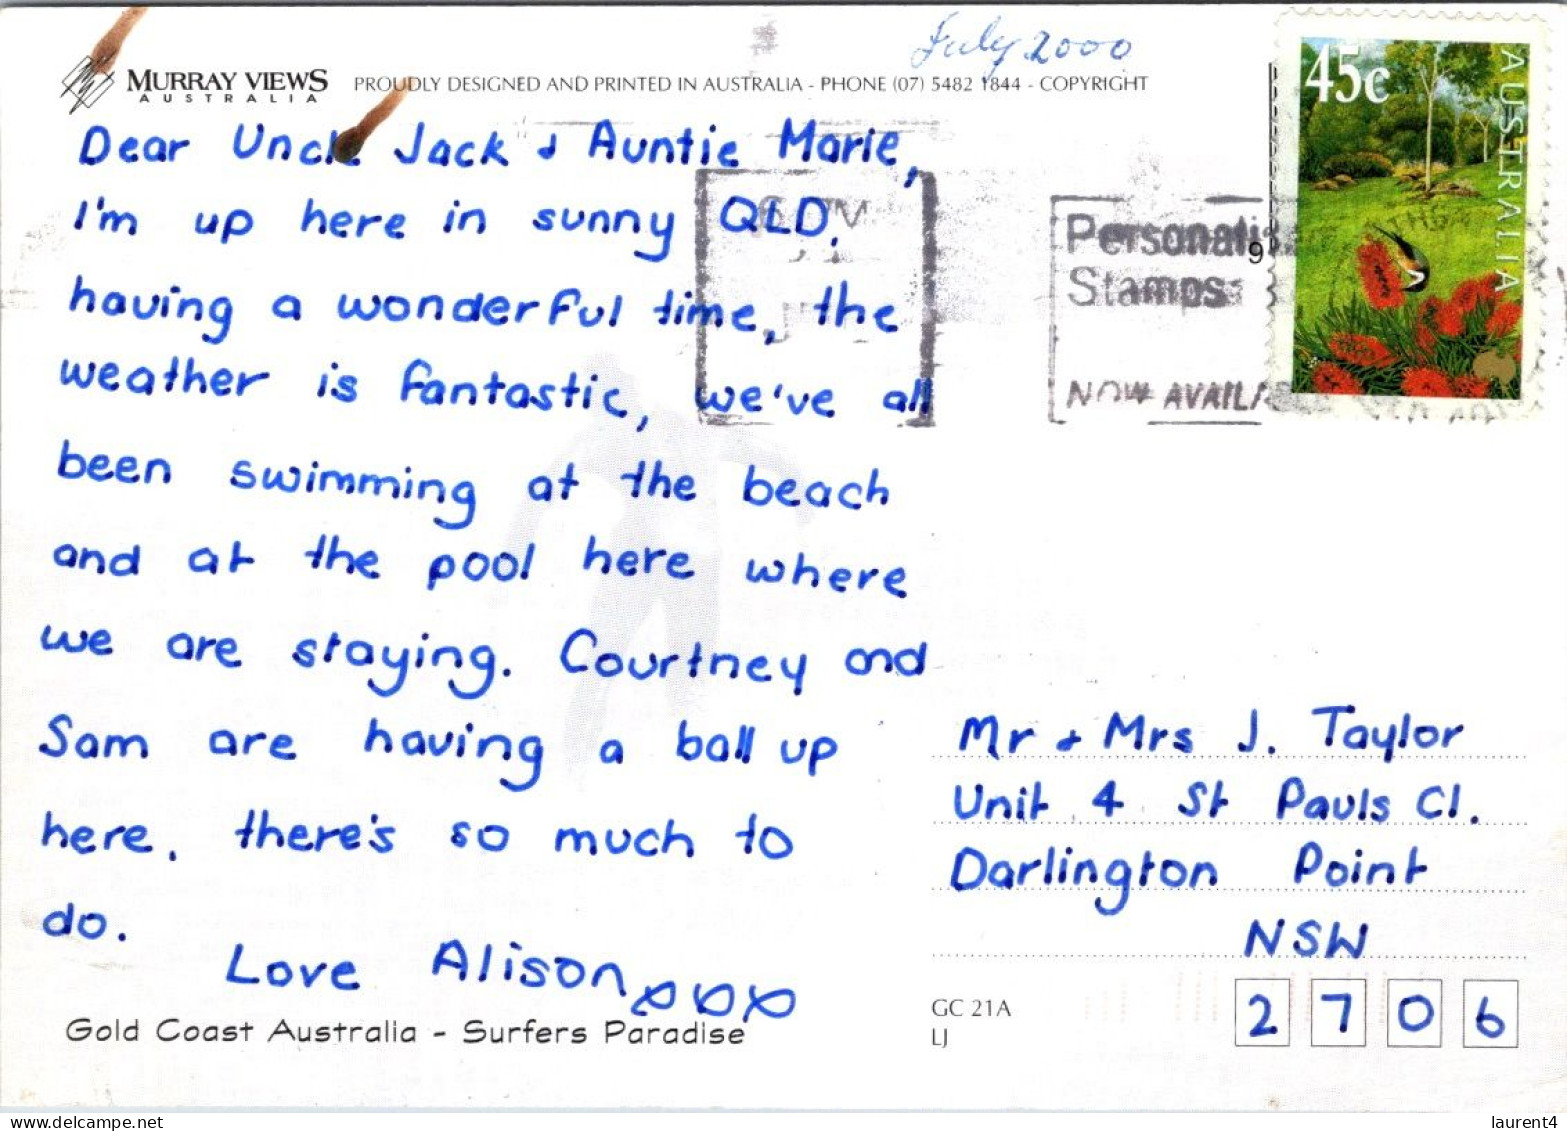 July 2000
MURRAY VIEWS
AUSTRALIA
PROUDLY DESIGNED AND PRINTED IN AUSTRALIA - PHONE (07) 5482 1844 - COPYRIGHT
45c
AUSTRALIA
Dear Uncle Jack & Auntie Marie,
I'm up here in sunny QLD,
having a wonderful time, the
weather is fantastic, we've all
been swimming at the beach
and at the pool here where
we are staying. Courtney and
Sam are having a ball up
here, there's so much to
do.
Love Alison xxx
Gold Coast Australia - Surfers Paradise
Personalis
Stamps
NOW AVAILA
9
Mr & Mrs J. Taylor
Unit 4 St Pauls Cl.
Darlington Point
NSW
2706
GC 21A
LJ
laurent4